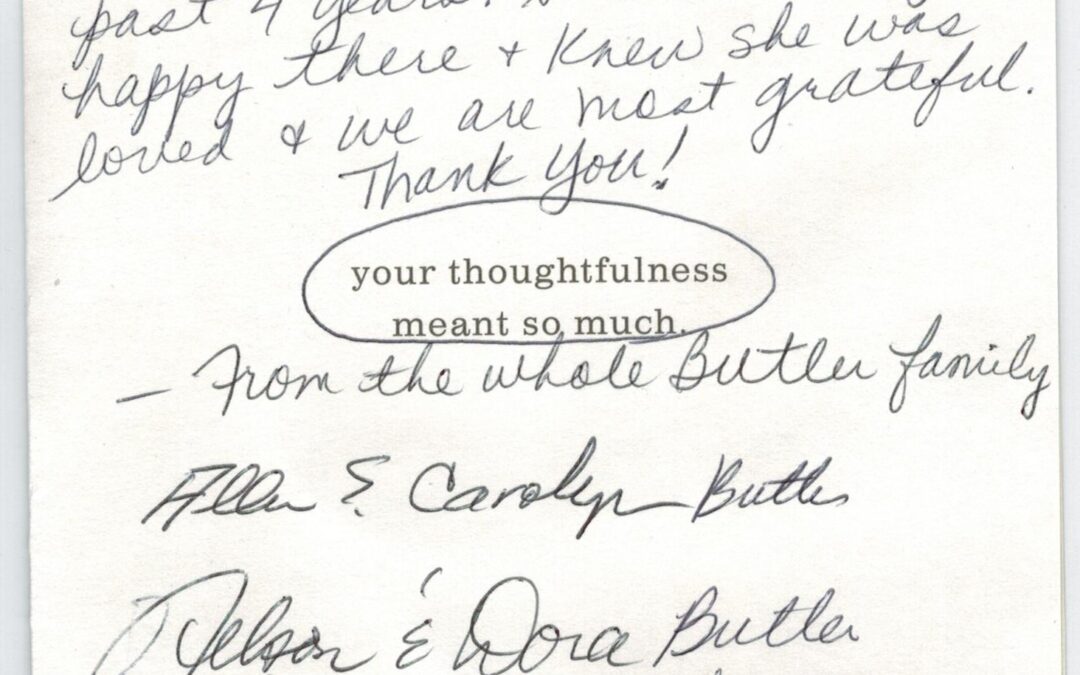 past 4 years.
happy there + knew she was
loved & we are most grateful.
Thank you!
your thoughtfulness
meant so much.
— From the whole Butler family
Allen & Carolyn Butler
Nelson & Dora Butler